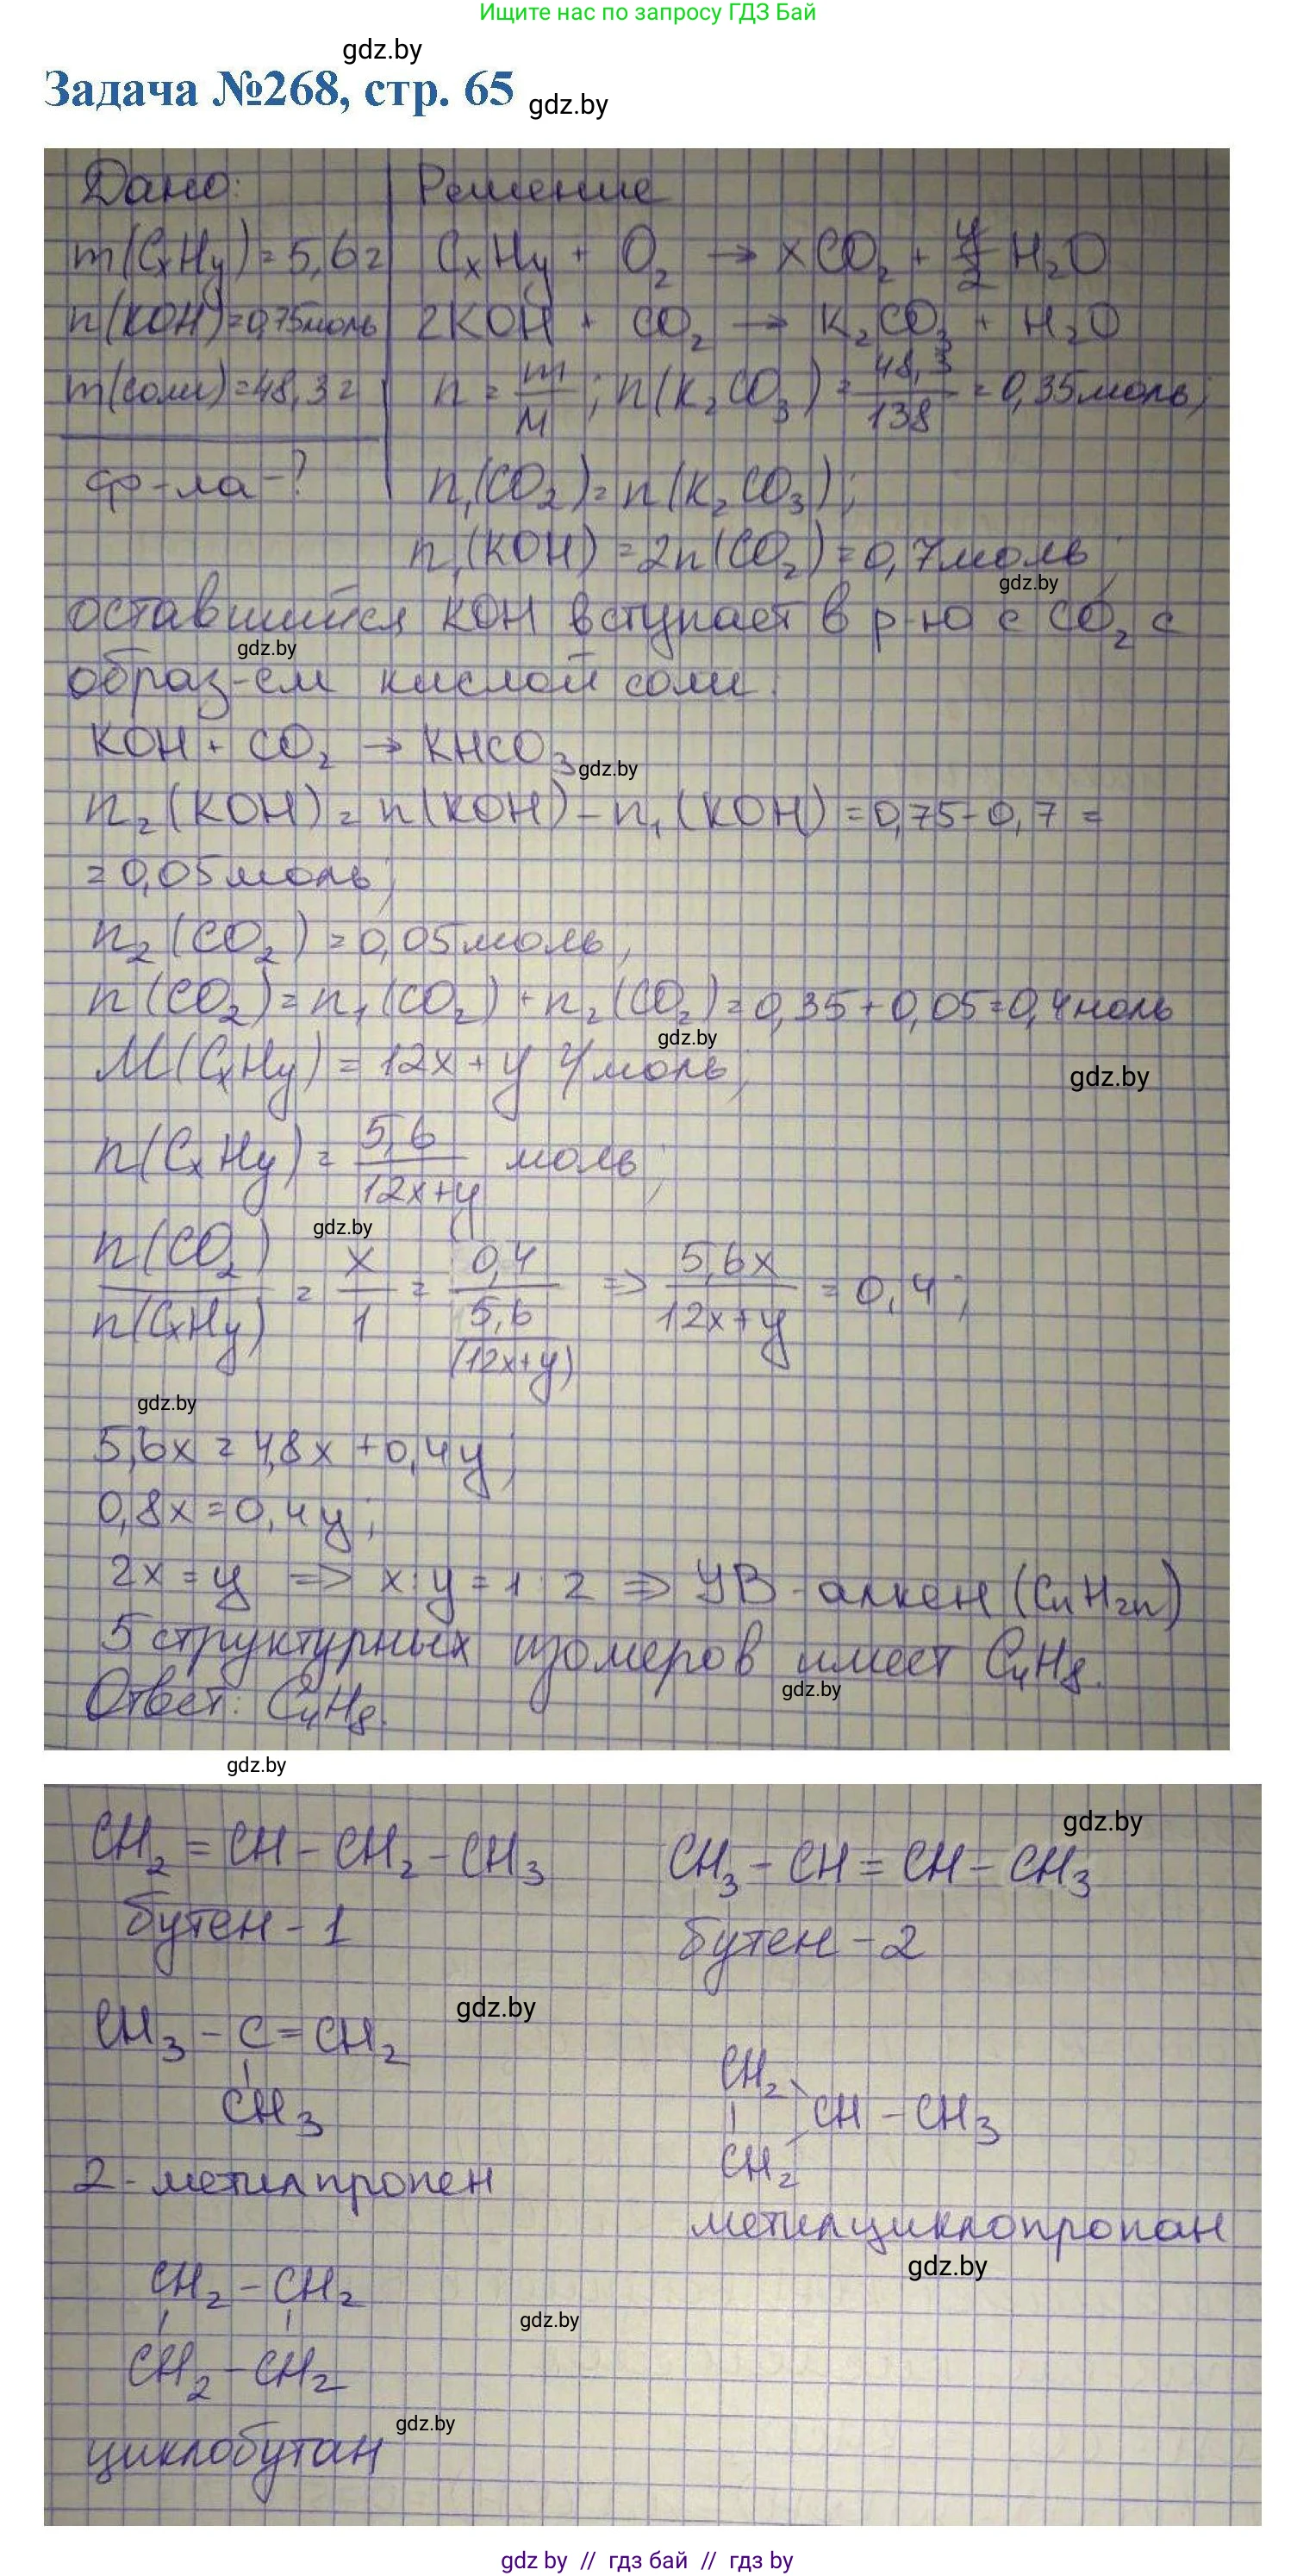 Ищите нас по запросу ГДЗ Бай
gdz.by
Задача №268, стр. 65 gdz.by
Дано: Решение
m(CₓHᵧ)=5,6г CₓHᵧ + O₂ → xCO₂ + y/2 H₂O
n(KOH)=0,75моль 2KOH + CO₂ → K₂CO₃ + H₂O
m(соли)=48,3г n = m/M; n(K₂CO₃) = 48,3/138 = 0,35моль;
ф-ла-? n₁(CO₂)=n(K₂CO₃);
n₁(KOH)=2n(CO₂)=0,7моль;
gdz.by
оставшийся KOH вступает в р-ю с CO₂ с
gdz.by
образ-ем кислой соли:
KOH + CO₂ → KHCO₃
gdz.by
n₂(KOH)=n(KOH)-n₁(KOH)=0,75-0,7=
=0,05моль;
n₂(CO₂)=0,05моль;
n(CO₂)=n₁(CO₂)+n₂(CO₂)=0,35+0,05=0,4моль
gdz.by
M(CₓHᵧ)=12x+y г/моль;
gdz.by
n(CₓHᵧ)= 5,6/(12x+y) моль;
gdz.by
n(CO₂)/n(CₓHᵧ) = x/1 = 0,4/(5,6/(12x+y)) => 5,6x/(12x+y) = 0,4;
gdz.by
5,6x=4,8x+0,4y;
0,8x=0,4y;
2x=y => x:y=1:2 => УВ-алкен (CₙH₂ₙ)
5 структурных изомеров имеет C₄H₈.
gdz.by
Ответ: C₄H₈.
gdz.by
gdz.by
CH₂=CH-CH₂-CH₃ CH₃-CH=CH-CH₃
бутен-1 бутен-2
gdz.by
CH₃-C=CH₂
CH₃
CH₂
CH-CH₃
CH₂
2-метилпропен
метилциклопропан
gdz.by
CH₂-CH₂
gdz.by
CH₂-CH₂
gdz.by
циклобутан
gdz by // гдз бай // гдз by